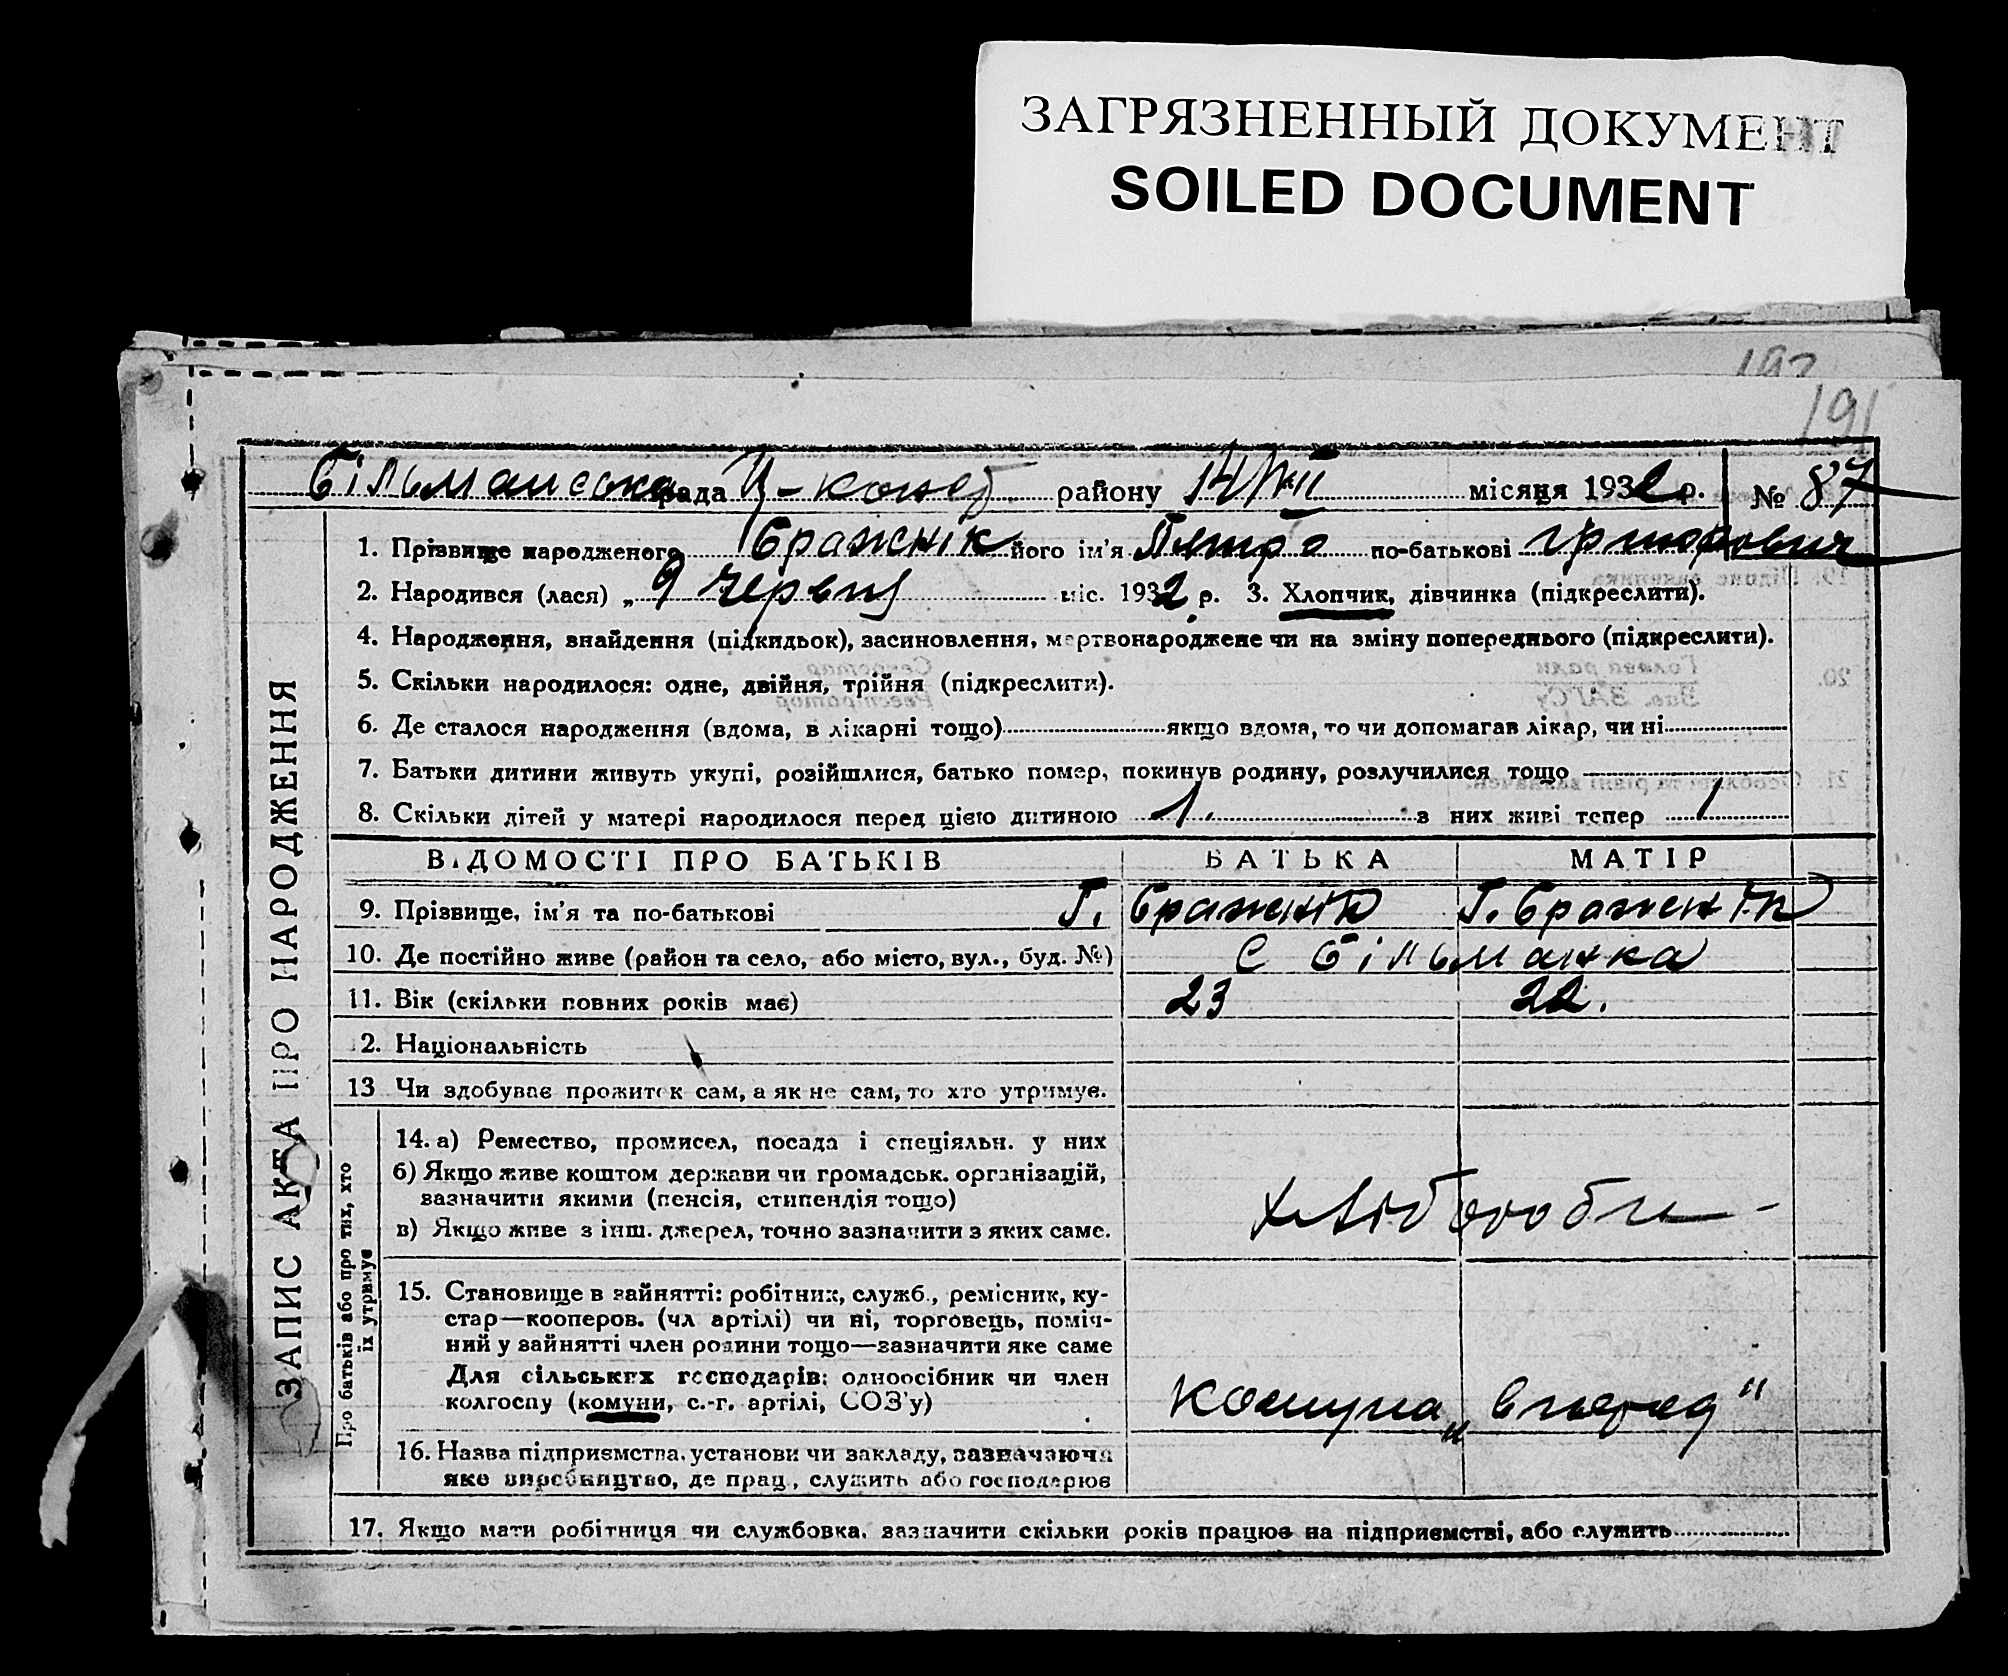 ЗАГРЯЗНЕННЫЙ ДОКУМЕНТ
SOILED DOCUMENT
192
191
Більманська рада Ц-коноб району 14/VII місяця 1932 р. № 87
1. Прізвище народженого Бражнік його ім'я Пятро по-батькові Григорович
2. Народився (лася) „ 9 червня міс. 1932 р. 3. Хлопчик, дівчинка (підкреслити).
4. Народження, знайдення (підкидьок), засиновлення, мертвонароджене чи на зміну попереднього (підкреслити).
5. Скільки народилося: одне, двійня, трійня (підкреслити).
6. Де сталося народження (вдома, в лікарні тощо) якщо вдома, то чи допомагав лікар, чи ні
7. Батьки дитини живуть укупі, розійшлися, батько помер, покинув родину, розлучилися тощо
8. Скільки дітей у матері народилося перед цією дитиною 1. з них живі тепер 1
ЗАПИС АКТА ПРО НАРОДЖЕННЯ
ВІДОМОСТІ ПРО БАТЬКІВ БАТЬКА МАТІР
9. Прізвище, ім'я та по-батькові Г. Бражнік Г. Бражнік
10. Де постійно живе (район та село, або місто, вул., буд. №) С Більманка
11. Вік (скільки повних років має) 23 22.
12. Національність
13 Чи здобуває прожиток сам, а як не сам, то хто утримує.
Про батьків або про тих, хто
їх утримує
14. а) Ремество, промисел, посада і спеціяльн. у них
б) Якщо живе коштом держави чи громадськ. організацій,
зазначити якими (пенсія, стипендія тощо)
в) Якщо живе з інш. джерел, точно зазначити з яких саме.
Хліборобы -
15. Становище в зайнятті: робітник, служб., ремісник, ку-
стар—кооперов. (чл артілі) чи ні, торговець, поміч-
ний у зайнятті член родини тощо—зазначити яке саме
Для сільських господарів: одноосібник чи член
колгоспу (комуни, с.-г. артілі, СОЗ'у) комуна „Вперед"
16. Назва підприємства, установи чи закладу, зазначаючи
яке виробництво, де прац., служить або господарює
17. Якщо мати робітниця чи службовка, зазначити скільки років працює на підприємстві, або служить